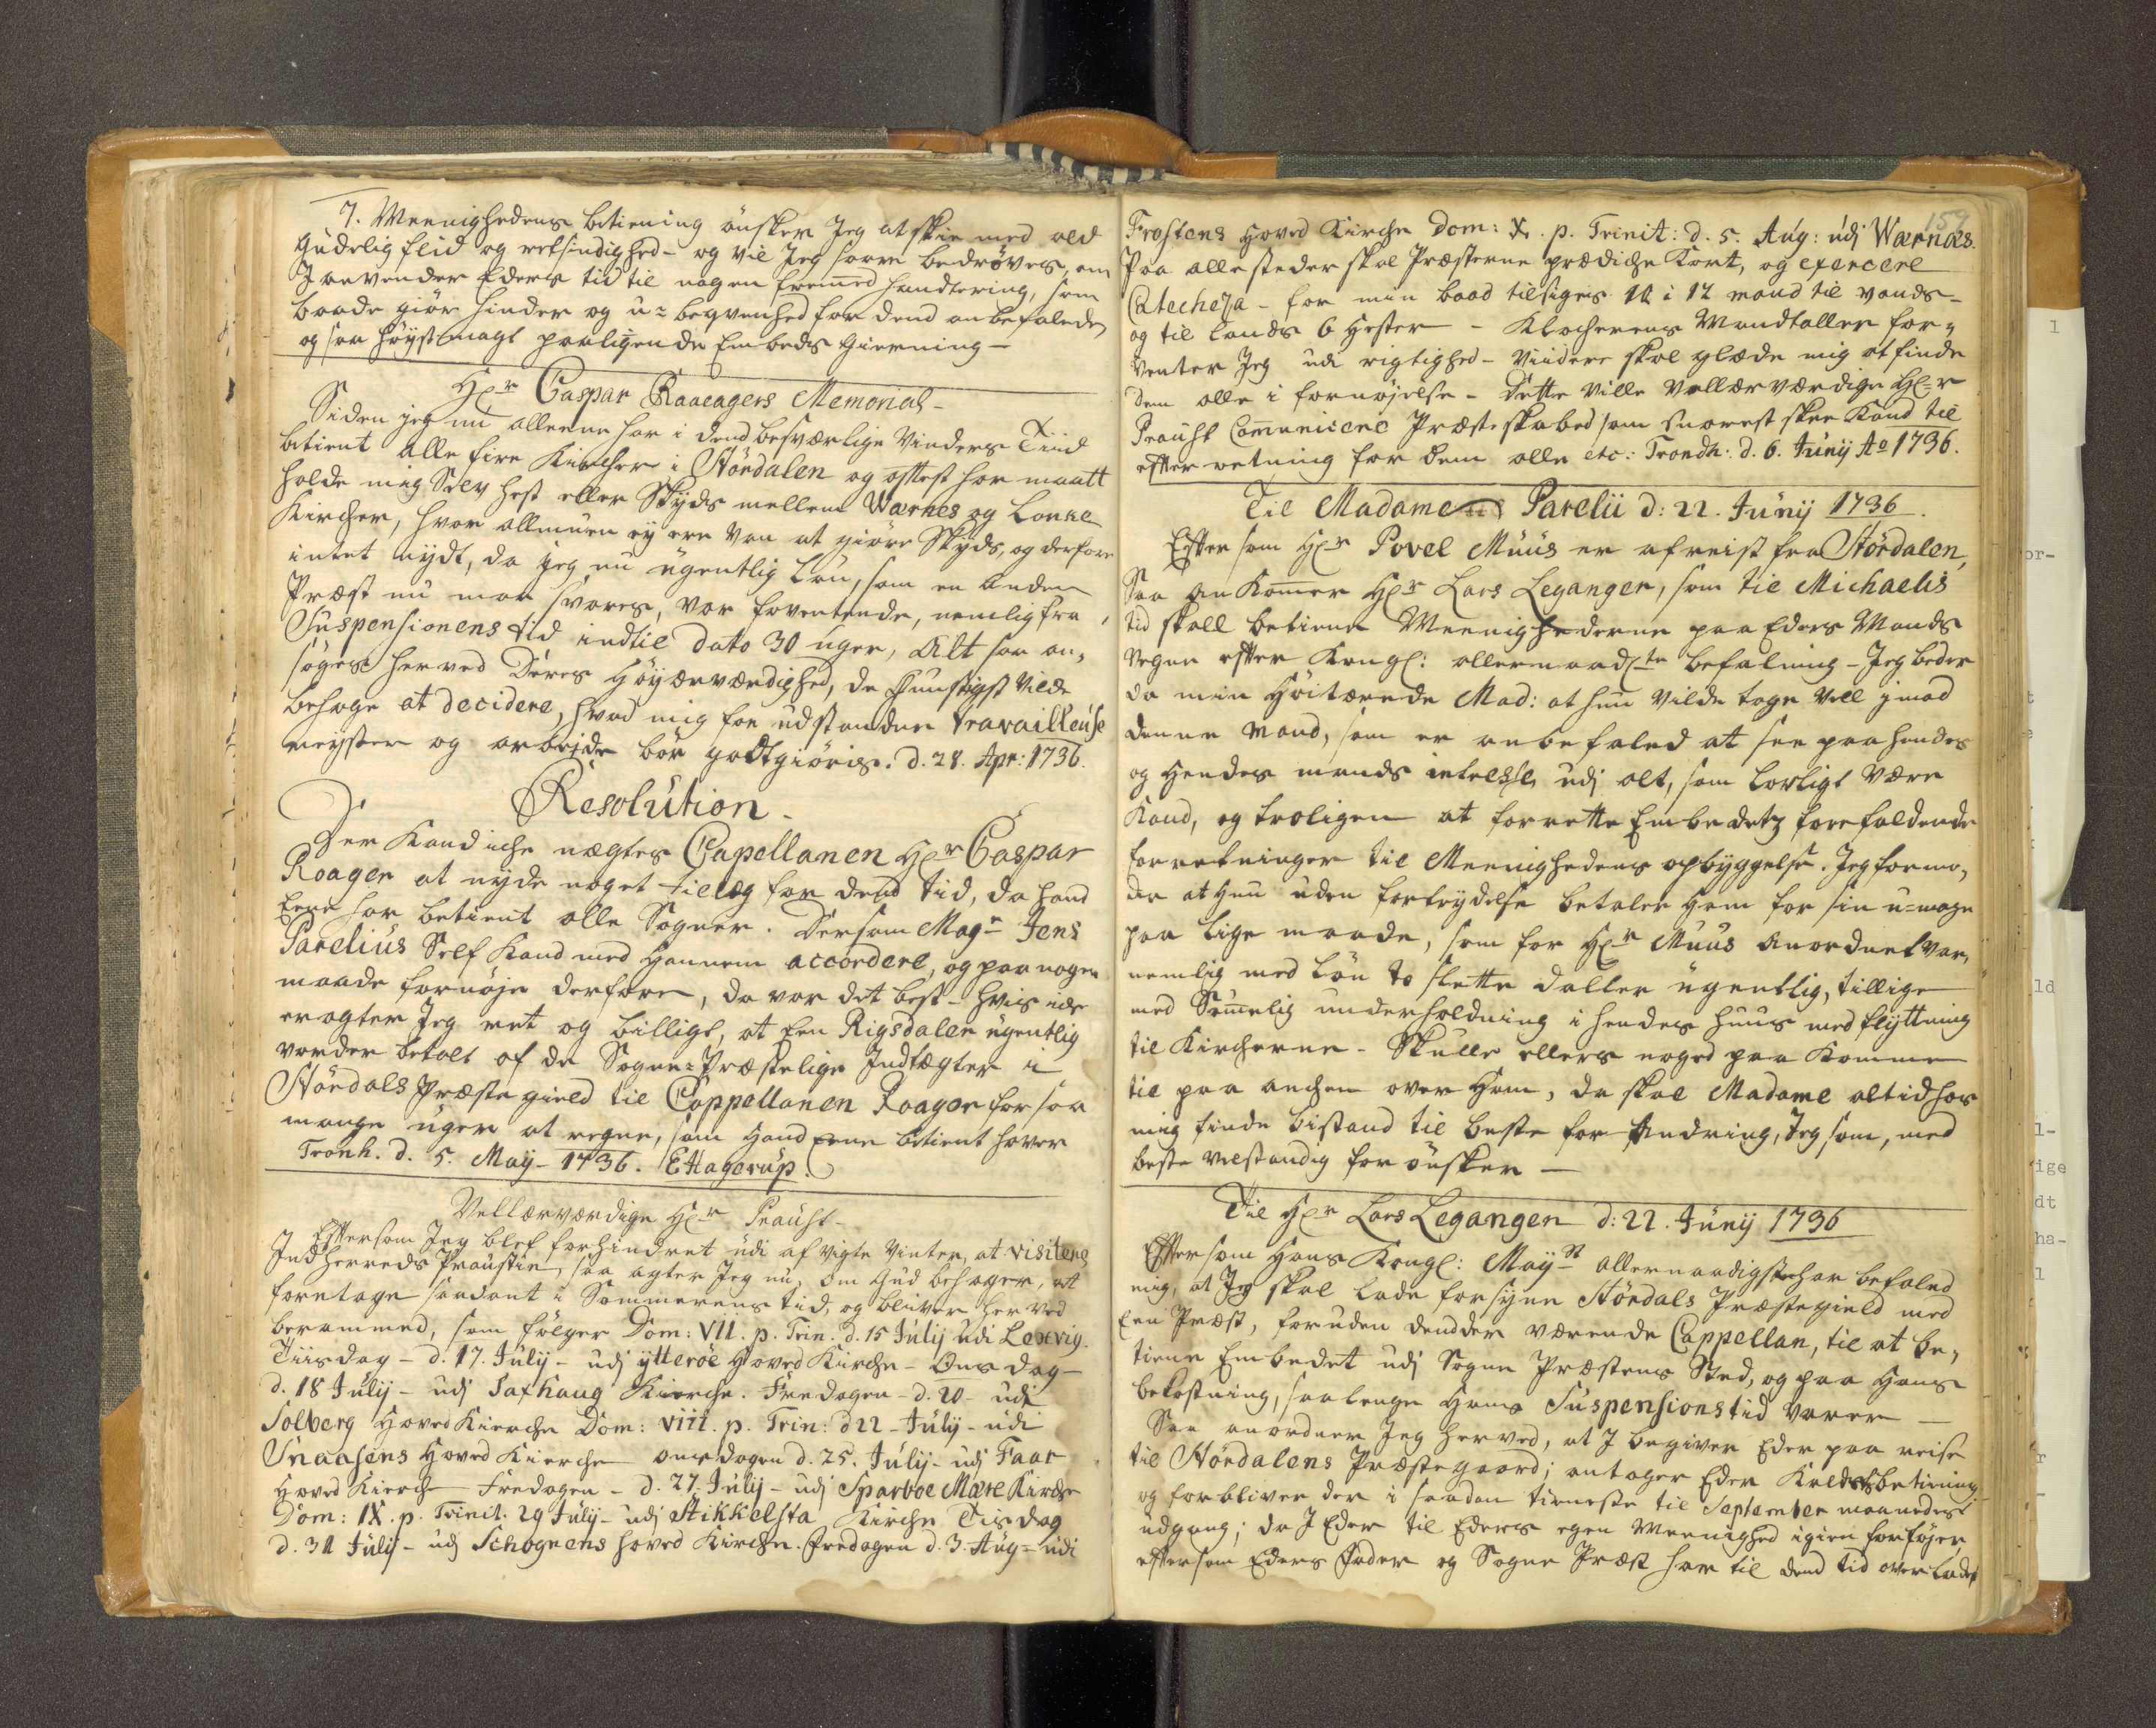 7. Meenighedens betiening önsker Jeg at skie med ald
Gudelig flid og retsindighed - og vil Jeg saare bedröves, om
I anvender Eders tid til nogen fremmed handtering, som
baade giör hinder og u-beqvemhed for dend anbefalede
og saa höystmagt paaligende Embeds Gierning -
Hr Caspar Raaeagers Memorial -
Siden jeg nu alleene har i dend besværlige Vinders Tiid
betient alle fire Kircher i Stördalen og oftest har maatt
holde mig Selv hest eller Skyds mellem Wærnes og Lonke
Kircher, hvor allmuen ey ere van at giöre Skyds, og derfore
intet nydt, da jeg nu ugentlig lön, som en anden
Præst nu maa svares, var foventende, nemlig fra
Suspensionens tid indtil dato 30 uger, Alt saa an-
söges herved Deres Höyærværdighed, de Gunstigst vilde
behage at decidere, hvad mig for udstandne travailleuse
reyser og arbejde bör godtgiöris. d. 28. Apr: 1736.
Resolution -
Der Kand iche nægtes Capellanen Hr Caspar
Roager at nyde noget tilæg for dend tid, da hand
Eene har betient alle Sogner. Dersom Magr Jens
Parelius Self Kand med hannem accordere, og paa nogen
maade fornöje derfore, da var det best - hvis icke
eragter Jeg ret og billigt, at Een Rigsdaler ugentlig
vorder betalt af de Sogne-Præstelige Indtægter i
Stördals Præstegield til Cappellanen Roager for saa
mange uger at regne, som hand Eene betient haver
Tronh. d. 5. Maÿ - 1736. EHagerup.
Vellærværdige Hr Prauht -
Eftersom Jeg blef forhindret udi afvigte Vinter, at visitere
Indherreds Praustie, saa agter Jeg nu, om Gud behager, at
foretage saadant i Sommerens tid, og bliver herved
berammed, som fölger Dom: VII. p. Trin. d. 15 Julij udi Lexvig.
Tiisdag - d. 17. Julij - udj ytteröe Hoved Kirche - Onsdag -
d. 18 Julij - udj Saxhaug Kierche. Fredagen - d. 20 - udi
Solberg Hoved Kierche Dom: VIII. p. Trin: d 22 - Julij - udi
Snaasens Hoved Kierche onsdagen d. 25. Julij - udj Faar
Hoved Kierch Fredagen - d. 27. Julij - udj Sparboe Mære Kirche
Dom: IX. p. Trinit. 29 Julij - udj Stikkelsta Kirche Tisdag
d. 31 Julij - udj Schognens hoved Kirche. Fredagen d. 3. Aug - udi
159
Frostens Hoved Kirche Dom: X. p. Trinit: d. 5. Aug: udj Wærnæs.
Paa alle steder skal Præsterne prædiche Kort, og exercere
Catechesa - for min baad tilsiges 10 i 12 mand til vands -
og til lands 6 Hester - Klocherens Mandtaller for-
venter Jeg udi rigtighed - Viidere skal glæde mig at finde
dem alle i fornöjelse - Dette ville Vellærværdige Hr
Prauht Communicere Præsteskabed som snarest skee Kand til
efterretning for dem alle etc: Trondh: d. 6. Junij Ao 1736.
Til Madame Parelii d: 22. Junij 1736.
Efter som Hr Povel Muus er afreist fra Stördalen,
Saa ankommer Hr Lars Leganger, som til Michaelis
tid skall betiene Meenighederne paa Eders Mands
vegne efter Kongl: allernaadste befalning - Jeg beder
da min Höitærede Mad: at hun vilde tage vell imod
denne mand, som er anbefaled at see paa hendes
og hendes mands intresse udj alt, som lovligt være
Kand, og troligen at forrette Embedetz forefaldende
forretninger til Meenighedens opbyggelse. Jeg formo-
der at hun uden fortrydelse betaler ham for sin u-mage
paa lige maade, som for Hr Muus anordnet var,
nemlig med lön to slette daller ugentlig, tillige
med Sömmelig underholdning i hendes huus med flyttning
til Kircherne - Skulle ellers noged paa Komme
til paa anchen over ham, da skal Madame altid hos
mig finde bistand til beste forandring, Jeg som, med
beste velstandig forönsker -
Til Hr Lars Leganger d: 22. Junij 1736
Eftersom Hans Kongl: Mayst allernaadigst har befaled
mig, at Jeg skal lade forsyne Stördals Præstegield med
Een Præst, foruden dend der værende Cappellan, til at be-
tiene Embedet udj Sogne Præstens Sted, og paa Hans
bekostning, saalenge Hans Suspensions tid varer -
Saa anordner Jeg herved, at I begiver Eder paa reise
til Stördalens Præstegaard; antager Eder Kaldsbetiening
og forbliver der i saadan tieneste til September maanedes
udgang; da I Eder til Eders egen Meenighed igien forföjer,
eftersom Eders Fader og Sogne Præst har til dend tid overladt